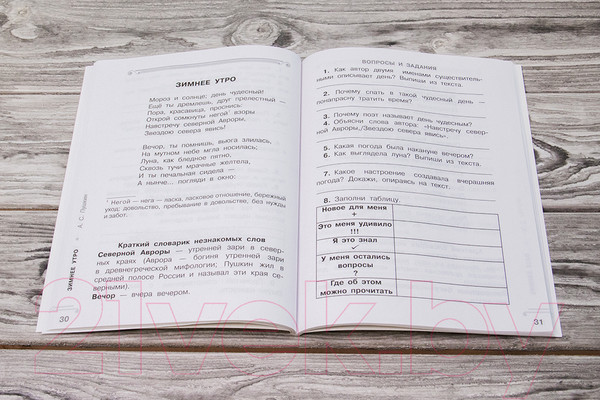 ЗИМНЕЕ УТРО
Мороз и солнце; день чудесный!
Ещё ты дремлешь, друг прелестный —
Пора, красавица, проснись:
Открой сомкнуты негой¹ взоры
Навстречу северной Авроры,
Звездою севера явись!
Вечор, ты помнишь, вьюга злилась,
На мутном небе мгла носилась;
Луна, как бледное пятно,
Сквозь тучи мрачные желтела,
И ты печальная сидела —
А нынче... погляди в окно:
¹ Негой — нега — ласка, ласковое отношение, бережный
уход; довольство, пребывание в довольстве, без нужды
и забот.
Краткий словарик незнакомых слов
Северной Авроры — утренней зари в север-
ных краях (Аврора — богиня утренней зари
в древнегреческой мифологии; Пушкин жил в
средней полосе России и называл эти края се-
верными).
Вечор — вчера вечером.
ЗИМНЕЕ УТРО • А. С. Пушкин
30
ВОПРОСЫ И ЗАДАНИЯ
1. Как автор двумя именами существитель-
ными описывает день? Выпиши из текста.
2. Почему спать в такой чудесный день —
понапрасну тратить время?
3. Почему поэт называет день чудесным?
4. Объясни слова автора: «Навстречу север-
ной Авроры,/Звездою севера явись».
5. Какая погода была накануне вечером?
6. Как выглядела луна? Выпиши из текста.
7. Какое настроение создавала вчерашняя
погода? Докажи, опираясь на текст.
8. Заполни таблицу.
Новое для меня
+
Это меня удивило
!!!
Я это знал
✓
У меня остались
вопросы
?
Где об этом
можно прочитать
31
21vek.by